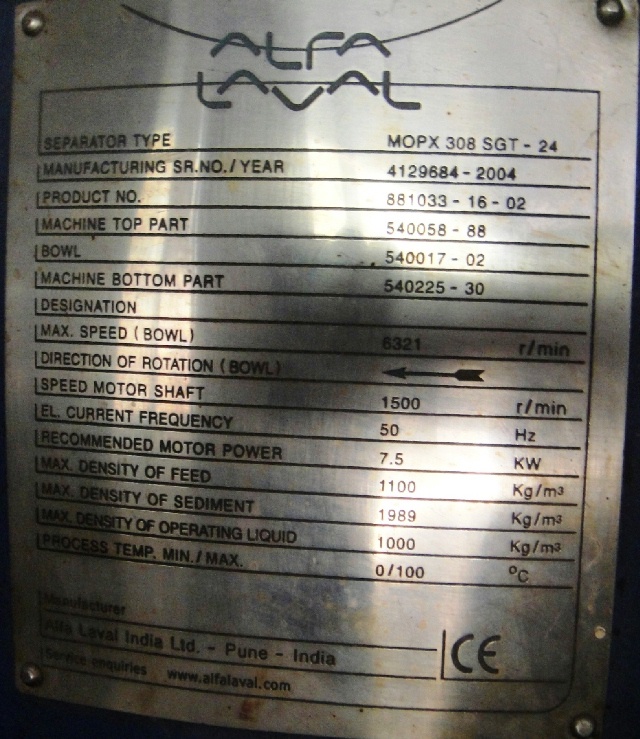 ALFA
LAVAL
SEPARATOR TYPE MOPX 308 SGT - 24
MANUFACTURING SR.NO./ YEAR 4129684 - 2004
PRODUCT NO. 881033 - 16 - 02
MACHINE TOP PART 540058 - 88
BOWL 540017 - 02
MACHINE BOTTOM PART 540225 - 30
DESIGNATION
MAX. SPEED ( BOWL) 6321 r/min
DIRECTION OF ROTATION ( BOWL)
SPEED MOTOR SHAFT 1500 r/min
EL. CURRENT FREQUENCY 50 Hz
RECOMMENDED MOTOR POWER 7.5 KW
MAX. DENSITY OF FEED 1100 Kg/m³
MAX. DENSITY OF SEDIMENT 1989 Kg/m³
MAX. DENSITY OF OPERATING LIQUID 1000 Kg/m³
PROCESS TEMP. MIN./ MAX. 0/100 °C
Manufacturer
Alfa Laval India Ltd. - Pune - India
CE
Service enquiries www.alfalaval.com